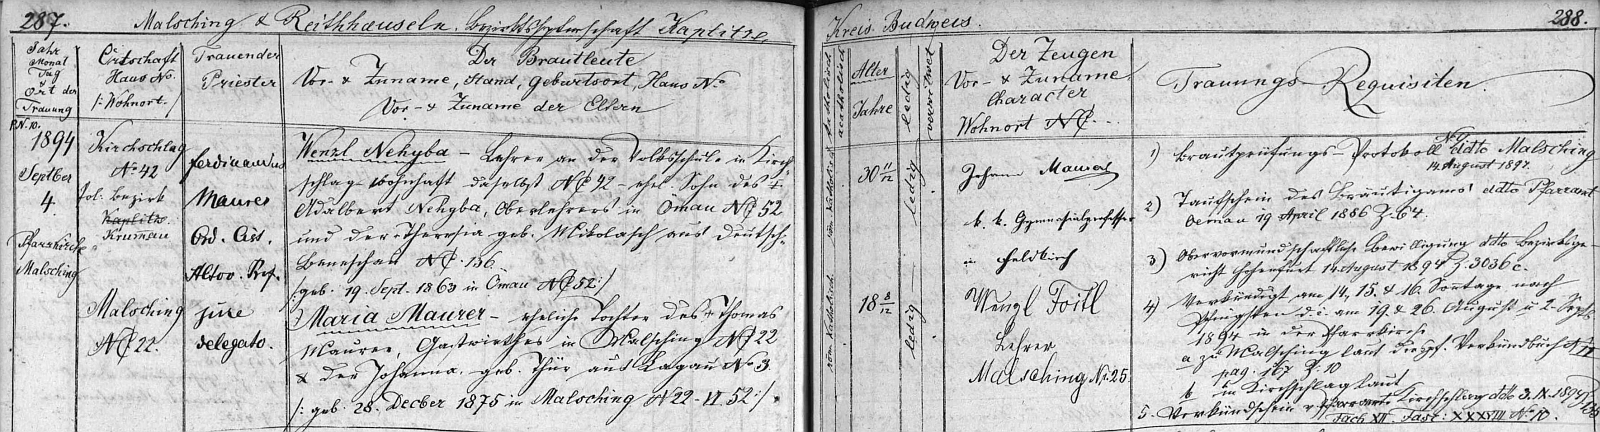 287.
Malsching & Reithhäuseln. Bezirkshptmschaft Kaplitz,
Jahr
Monat
Tag
Ort der
Trauung
Ortschaft
Haus No.
/: Wohnort. /
Trauender
Priester
Der Brautleute
Vor- & Zuname, Stand, Geburtsort, Haus No
Vor- & Zuname der Eltern
P.N. 10.
1894
Septber
4.
Pfarrkirche
Malsching
Kirchschlag
No 42
pol. Bezirk
Kaplitz
Krumau
Malsching
NC 22.
Ferdinandus
Maurer
Ord. Cis.
Altov. Prof.
jure
delegato.
Wenzl Nehyba – Lehrer an der Volksschule in Kirch-
schlag wohnhaft daselbst NC 42 – ehel. Sohn des +
Adalbert Nehyba, Oberlehrers in Omau NC 52
und der Theresia geb. Mikolasch aus Deutsch-
Beneschau NC 136
/: geb. 19. Sept. 1863 in Omau NC 52 :/
Maria Maurer – eheliche Tochter des + Thomas
Maurer, Gastwirthes in Malsching NC 22
& der Johanna geb. Thür aus Lagau No 3
/: geb. 28. Decber 1875 in Malsching N 22
Kreis Budweis.
288.
Alter
Jahre
ledig
verwitwet
Der Zeugen
Vor- & Zuname
Character
Wohnort NC
Trauungs-Requisiten.
30 11/12
ledig
Johann Maurer
k. k. Gymnasialprofessor
in Feldkirch
18 8/12
ledig
Wenzl Foitl
Lehrer
Malsching No 25
1) Brautprüfungs-Protokoll ddto Malsching
14. August 1897.
2) Taufschein des Bräutigams ddto Pfarramt
Oemau 19 April 1886 Z. 64.
3) Obervormundschaftliche Bewilligung ddto Bezirksge-
richt Hohenfurt 14 August 1894 Z. 3036 c.
4) Verkündigt am 14, 15. & 16. Sontage nach
Pfingsten d. i. am 19 & 26. August u 2. Septb
1894 in der Pfarrkirche
a zu Malsching laut Verkündbuch
pag. 167 Z. 10
b in Kirchschlag laut
5. Verkündschein v Pfarramte Kirschschlag ddto 3. IX. 1894
Fach XII. Fasc: XXXVIII No 10.